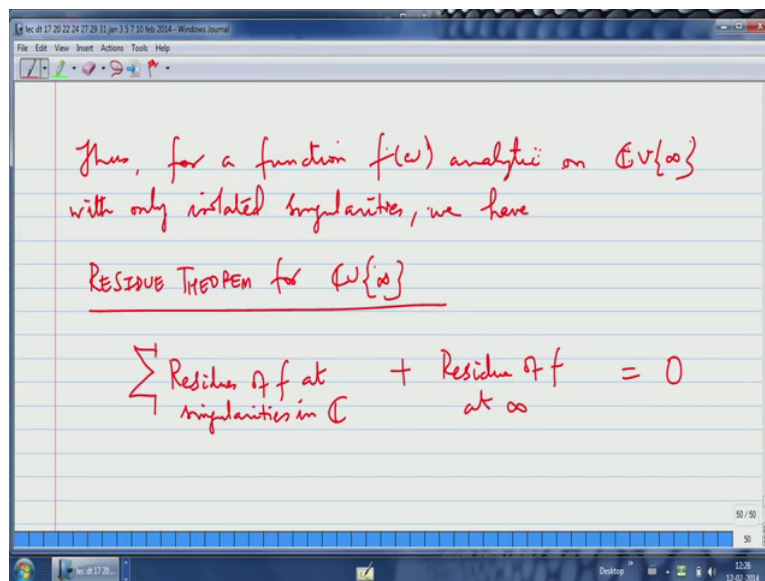 lec dt 17 20 22 24 27 29 31 jan 3 5 7 10 feb 2014 - Windows Journal
File Edit View Insert Actions Tools Help
Thus, for a function f(w) analytic on ℂ∪{∞}
with only isolated singularities, we have
RESIDUE THEOREM for ℂ∪{∞}
∑ Residues of f at singularities in ℂ + Residue of f at ∞ = 0
50 / 50
50
lec dt 17 20...
Desktop
12:26
12-02-2014